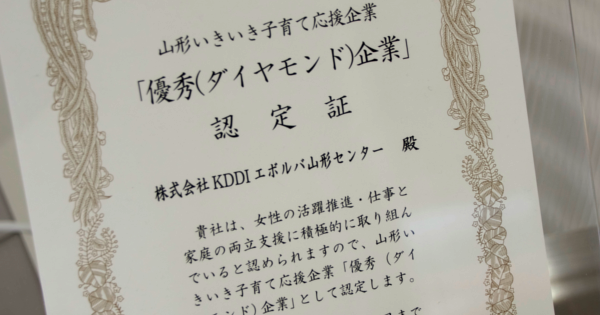 山形いきいき子育て応援企業
「優秀(ダイヤモンド)企業」
認定証
株式会社KDDIエボルバ山形センター 殿
貴社は、女性の活躍推進・仕事と
家庭の両立支援に積極的に取り組ん
でいると認められますので、山形い
きいき子育て応援企業「優秀(ダイ
ヤモンド)企業」として認定します。